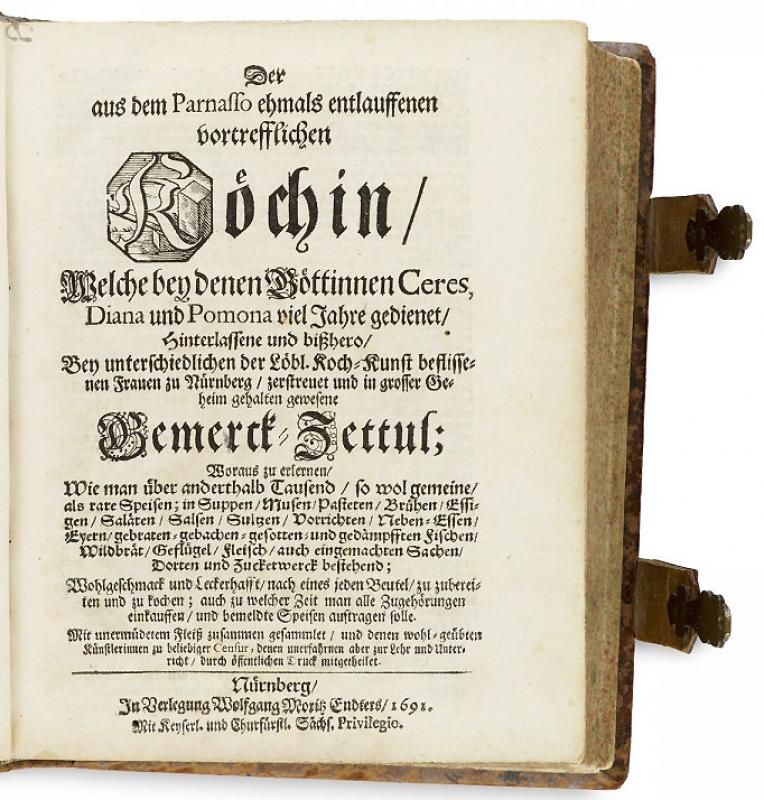 Der
aus dem Parnasso ehmals entlauffenen
vortrefflichen
Koͤchin/
Welche bey denen Göttinnen Ceres,
Diana und Pomona viel Jahre gedienet/
Hinterlassene und bißhero/
Bey unterschiedlichen der Löbl. Koch-Kunst beflisse-
nen Frauen zu Nürnberg/ zerstreuet und in grosser Ge-
heim gehalten gewesene
Gemerck-Zettul;
Woraus zu erlernen/
Wie man über anderthalb Tausend/ so wol gemeine/
als rare Speisen; in Suppen/ Musen/ Pasteten/ Brühen/ Essi-
gen/ Saläten/ Salsen/ Sultzen/ Vorrichten/ Neben-Essen/
Eyern/ gebraten-gebachen-gesotten-und gedämpfften Fischen/
Wildbrät/ Geflügel/ Fleisch/ auch eingemachten Sachen/
Dorten und Zuckerwerck bestehend;
Wohlgeschmack und Leckerhafft/ nach eines jeden Beutel/ zu zuberei-
ten und zu kochen; auch zu welcher Zeit man alle Zugehörungen
einkauffen/ und bemeldte Speisen auftragen solle.
Mit unermüdetem Fleiß zusammen gesammlet/ und denen wohl-geübten
Künstlerinnen zu beliebiger Censur, denen unerfahrnen aber zur Lehr und Unter-
richt/ durch öffentlichen Druck mitgetheilet.
Nürnberg/
In Verlegung Wolfgang Moritz Endters/ 1691.
Mit Keyserl. und Churfürstl. Sächs. Privilegio.